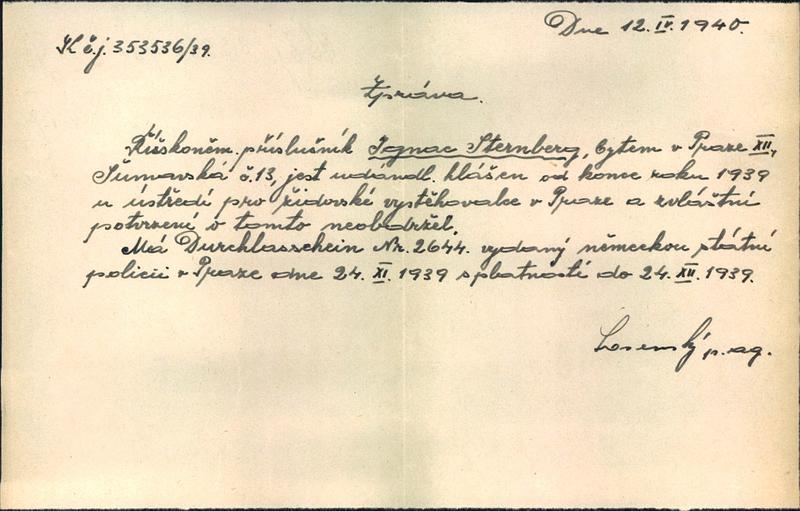 Dne 12.IV.1940.
K č.j.353536/39.
Zpráva.
Říškoněm. příslušník Ignac Sternberg, bytem v Praze XII,
Šumavská č.13, jest udándl. hlášen od konce roku 1939
u ústředí pro židovské vystěhovalce v Praze a zvláštní
potvrzení o tomto neobdržel.
Má Durchlasschein Nr. 2644. vydaný německou státní
policií v Praze dne 24. XI. 1939 splatností do 24. XII. 1939.
Losenský p.ag.